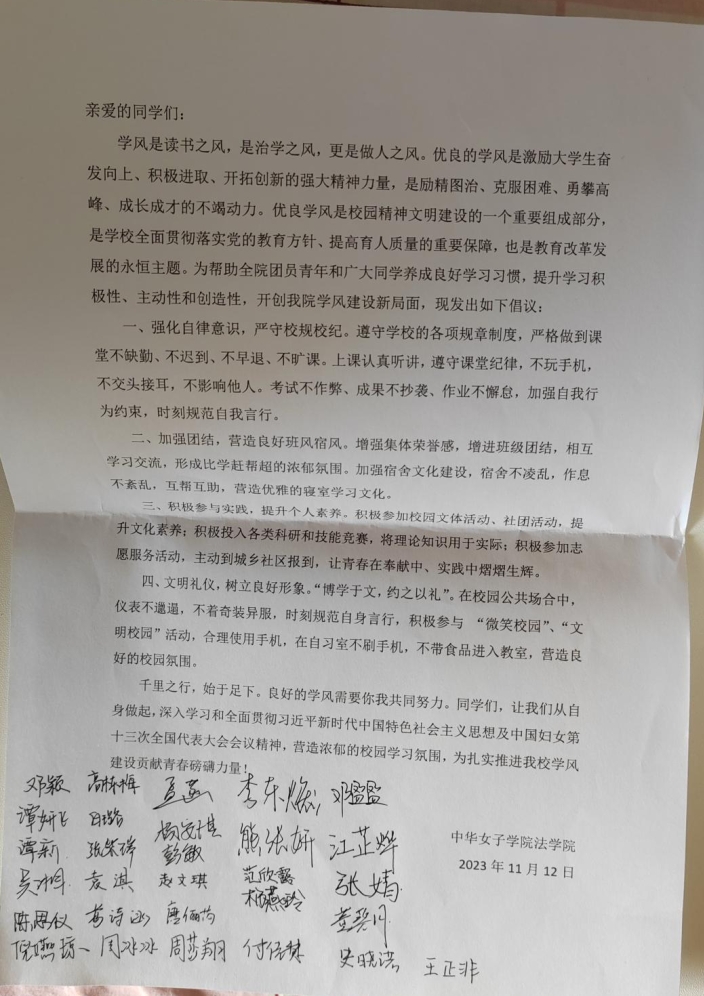 亲爱的同学们：
学风是读书之风，是治学之风，更是做人之风。优良的学风是激励大学生奋
发向上、积极进取、开拓创新的强大精神力量，是励精图治、克服困难、勇攀高
峰、成长成才的不竭动力。优良学风是校园精神文明建设的一个重要组成部分，
是学校全面贯彻落实党的教育方针、提高育人质量的重要保障，也是教育改革发
展的永恒主题。为帮助全院团员青年和广大同学养成良好学习习惯，提升学习积
极性、主动性和创造性，开创我院学风建设新局面，现发出如下倡议：
一、强化自律意识，严守校规校纪。遵守学校的各项规章制度，严格做到课
堂不缺勤、不迟到、不早退、不旷课。上课认真听讲，遵守课堂纪律，不玩手机，
不交头接耳，不影响他人。考试不作弊、成果不抄袭、作业不懈怠，加强自我行
为约束，时刻规范自我言行。
二、加强团结，营造良好班风宿风。增强集体荣誉感，增进班级团结，相互
学习交流，形成比学赶帮超的浓郁氛围。加强宿舍文化建设，宿舍不凌乱，作息
不紊乱，互帮互助，营造优雅的寝室学习文化。
三、积极参与实践，提升个人素养。积极参加校园文体活动、社团活动，提
升文化素养；积极投入各类科研和技能竞赛，将理论知识用于实际；积极参加志
愿服务活动，主动到城乡社区报到，让青春在奉献中、实践中熠熠生辉。
四、文明礼仪，树立良好形象。“博学于文，约之以礼”。在校园公共场合中，
仪表不邋遢，不着奇装异服，时刻规范自身言行，积极参与 “微笑校园”、“文
明校园”活动，合理使用手机，在自习室不刷手机，不带食品进入教室，营造良
好的校园氛围。
千里之行，始于足下。良好的学风需要你我共同努力。同学们，让我们从自
身做起，深入学习和全面贯彻习近平新时代中国特色社会主义思想及中国妇女第
十三次全国代表大会会议精神，营造浓郁的校园学习氛围，为扎实推进我校学风
建设贡献青春磅礴力量！
邓颖 孟燕 邓蕴蕴
中华女子学院法学院
熊张妍 江芷烨
谭新 张荣瑞 彭敏
2023 年 11 月 12 日
袁淇 赵文琪 范欣露 张婧
陈思仪 唐俪芮
周冰冰 周梦翔 史晓洪 王正非